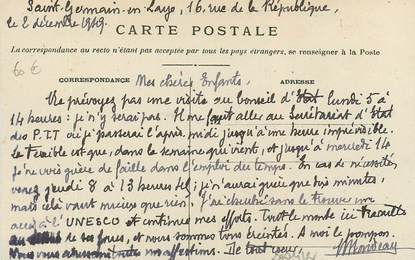 Saint-Germain-en-Laye, 16, rue de la République,
le 2 décembre 1949.
CARTE POSTALE
La correspondance au recto n'étant pas acceptée par tous les pays étrangers, se renseigner à la Poste
60 €
CORRESPONDANCE
Mes chers Enfants,
ADRESSE
Ne prévoyez pas une visite au Conseil d'Etat lundi 5 à
14 heures : je n'y serai pas. Il me faut aller au Secrétariat d'Etat
des P.T.T où je passerai l'après-midi jusqu'à une heure imprévisible.
Le terrible est que, dans la semaine qui vient, et jusqu'à mercredi 14
je ne vois guère de faille dans l'emploi du temps. En cas de nécessité,
venez jeudi 8 à 13 heures
je n'aurai guère que dix minutes,
mais cela vaut mieux que rien. J'ai cherché sans le trouver un
accès à l'UNESCO et continue mes efforts. Tout le monde ici travaille
au
de ses forces, et nous sommes tous éreintés. A moi le pompon.
Nous vous
toutes nos affections.
tout cœur,